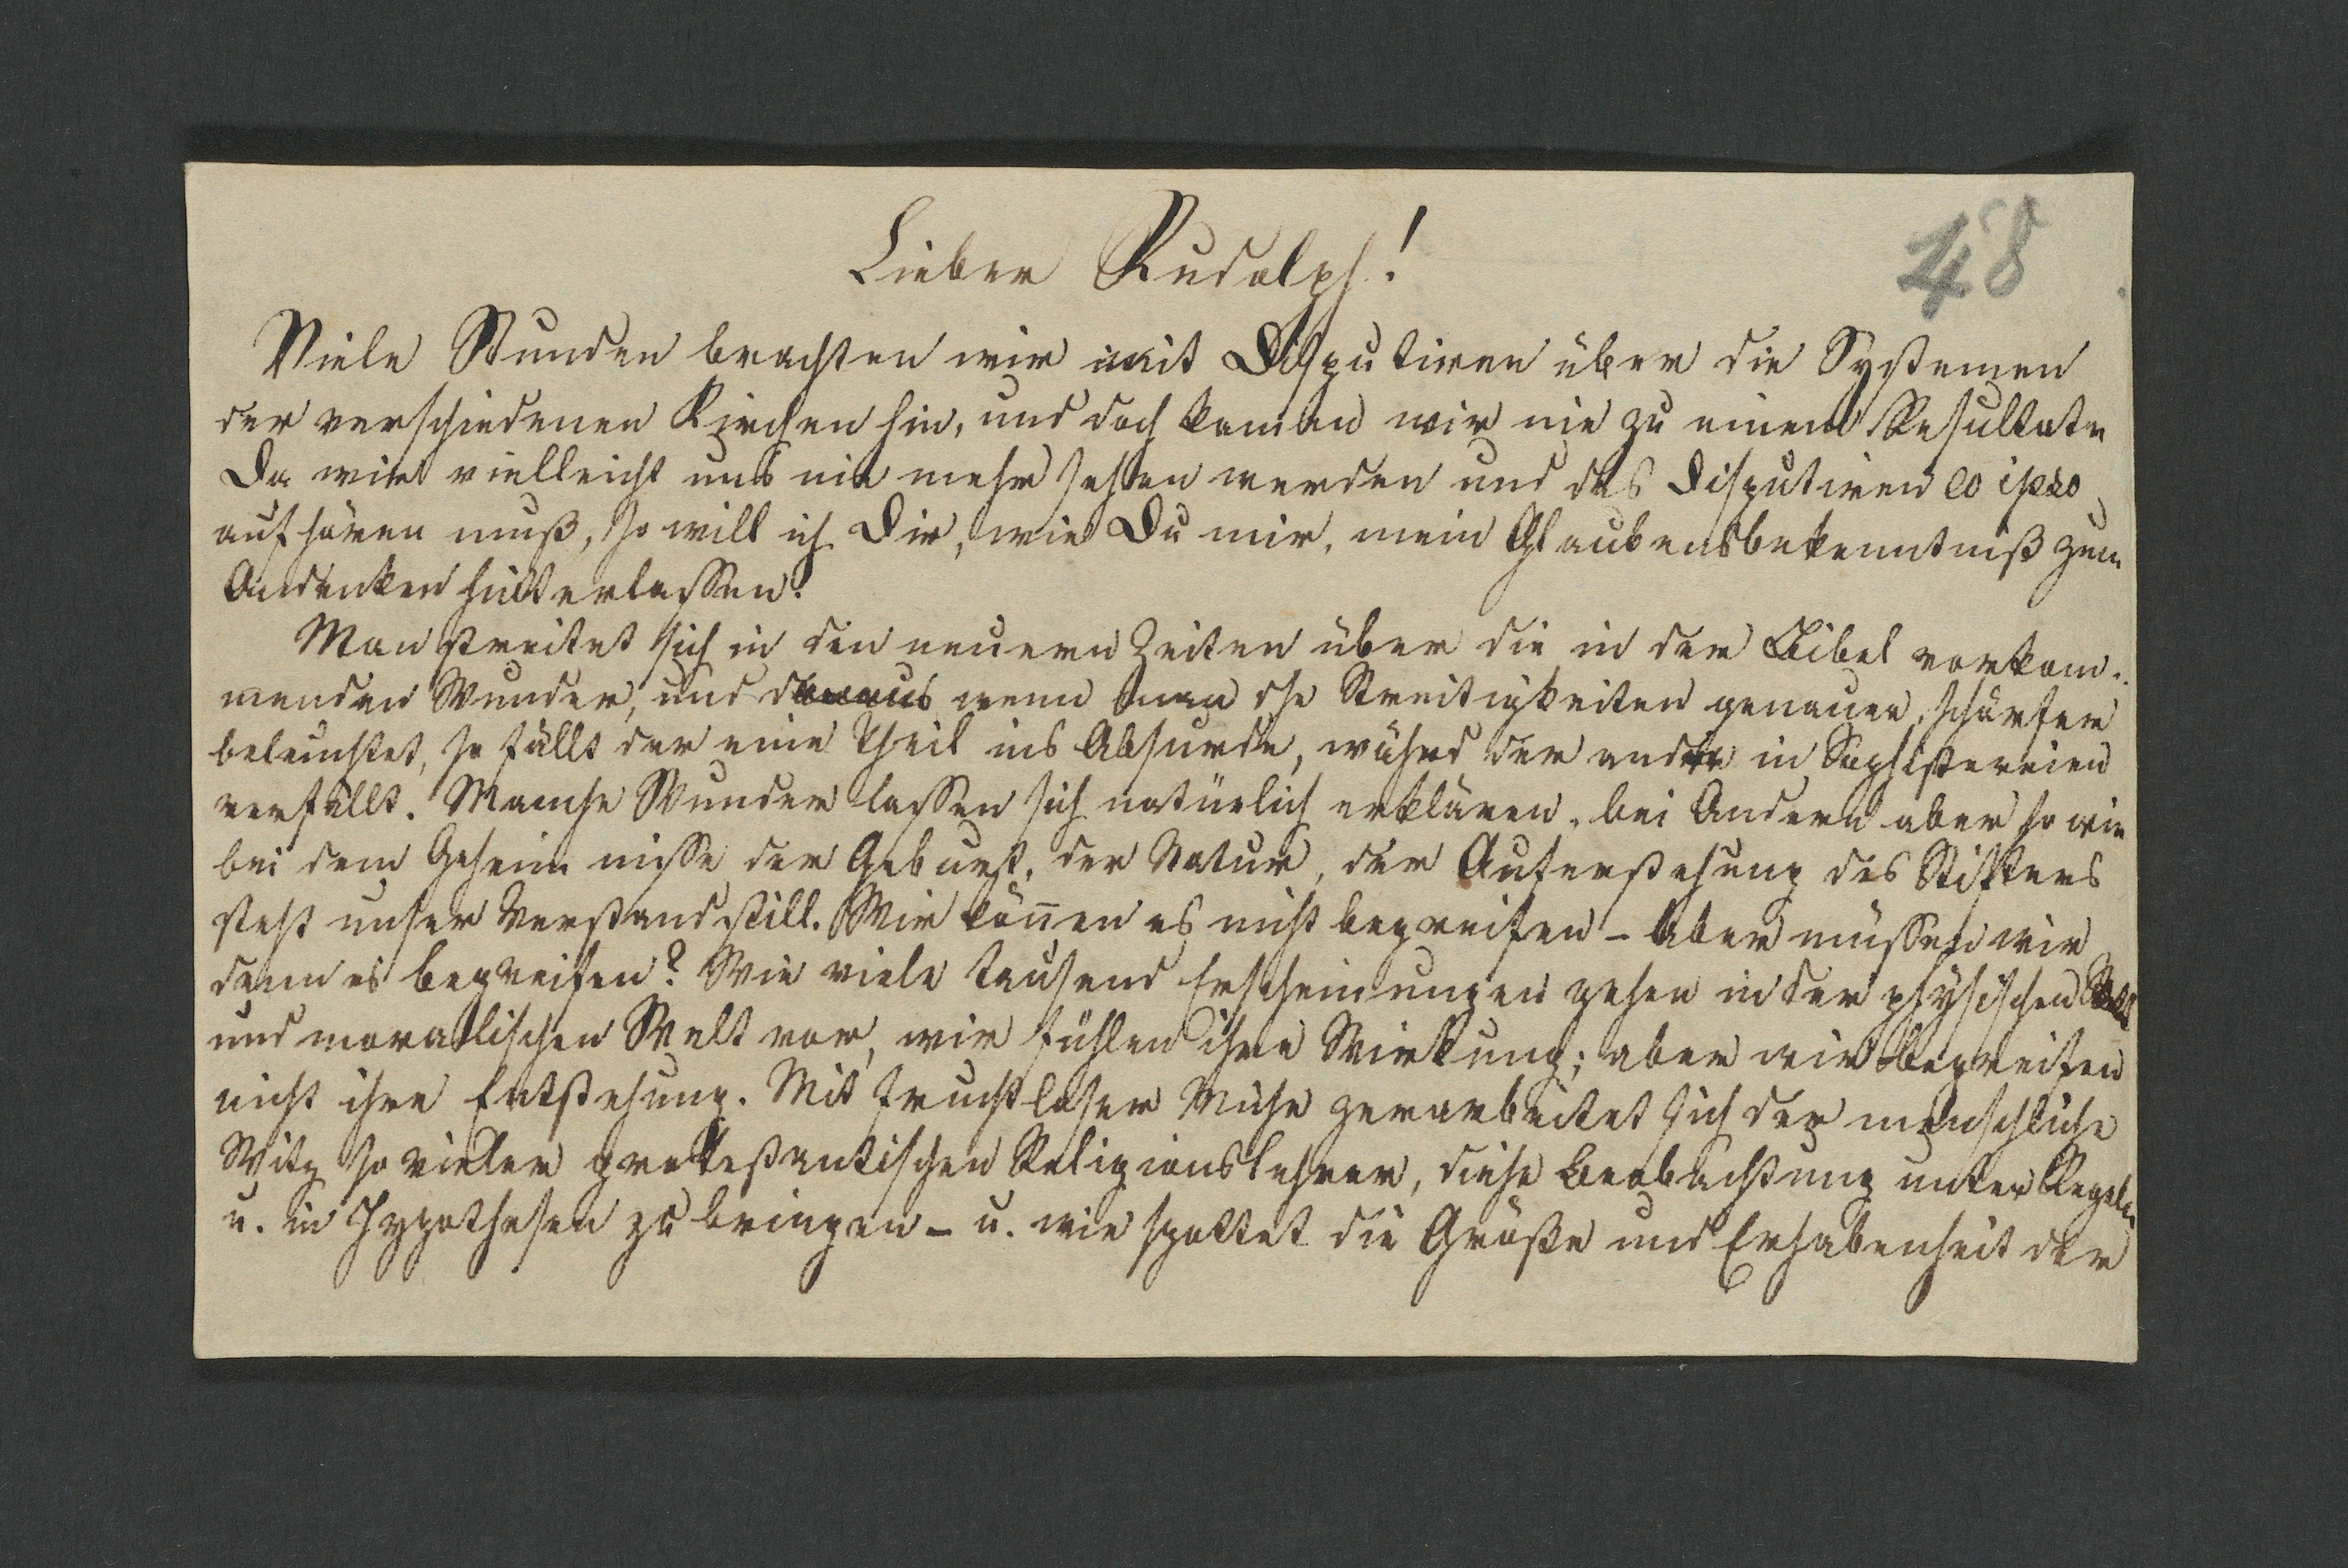 48
Lieber Rudolph!
Viele Stunden brachten wir mit Disputiren über die Systemen
der verschiedenen Kirchen hin, und doch kamen wir nie zu einem Resultate
Da wir vielleicht uns nie mehr sehen werden und das Disputiren eo ipso
aufhören muß, so will ich Dir, wie Du mir, mein Glaubensbekenntniß zum
Andenken hinterlassen.
Man streitet sich in den neuern Zeiten über die in der Bibel vorkom-
menden Wunder, und wenn man die Streitigkeiten genauer, schärfer
beleuchtet, so fällt der eine Theil ins Absurde, währd der andre in Sophistereien
verfällt. Manche Wunder lassen sich natürlich erklären, bei Andern aber so wie
bei dem Geheimnisse der Geburt, der Natur, der Auferstehung des Stifters
steht unser Verstand still. Wir können es nicht begreifen – Aber müssen wir
denn es begreifen? Wie viele tausend Erscheinungen gehen in der physischen
und moralischen Welt vor, wir fühlen ihre Wirkung; aber wir begreifen
nicht ihre Entstehung. Mit fruchtloser Mühe zerarbeitet sich der menschliche
Witz so vieler protestantischen Religionslehrer, diese Beobachtung unter Regeln
u. in Hypothesen zu bringen – u. wie spottet die Größe und Erhabenheit der